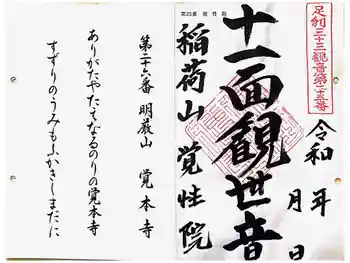 足利三十三観音第二十五番
令和 年 月 日
第25番 覚性院
十一面観世音
稲荷山 覚性院
第二十六番 明厳山 覚本寺
ありがたやたえなるのりの覚本寺
すずりのうみもふかきしまだに